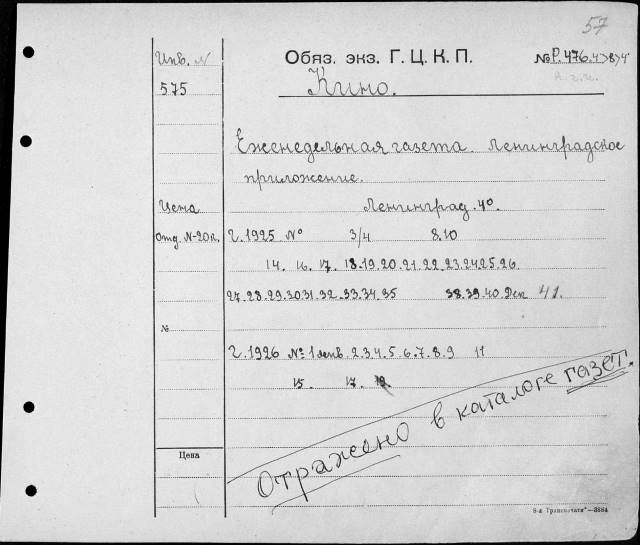 57
Инв. N Обяз. экз. Г. Ц. К. П. № Р. 476.
575 Кино.
Еженедельная газета. Ленинградское
приложение.
Цена Ленинград. 4°.
Отд. N-20к. Г. 1925 № 3/4 8.10
14. 16. 17. 18.19.20.21.22.23.24 25.26.
27.28.29.30.31.32.33.34.35 38.39.40. Дек 41.
№
Г. 1926 № 1 янв. 2.3.4.5.6.7.8.9 11
15. 17.
Отражено в каталоге газет.
Цена
3884